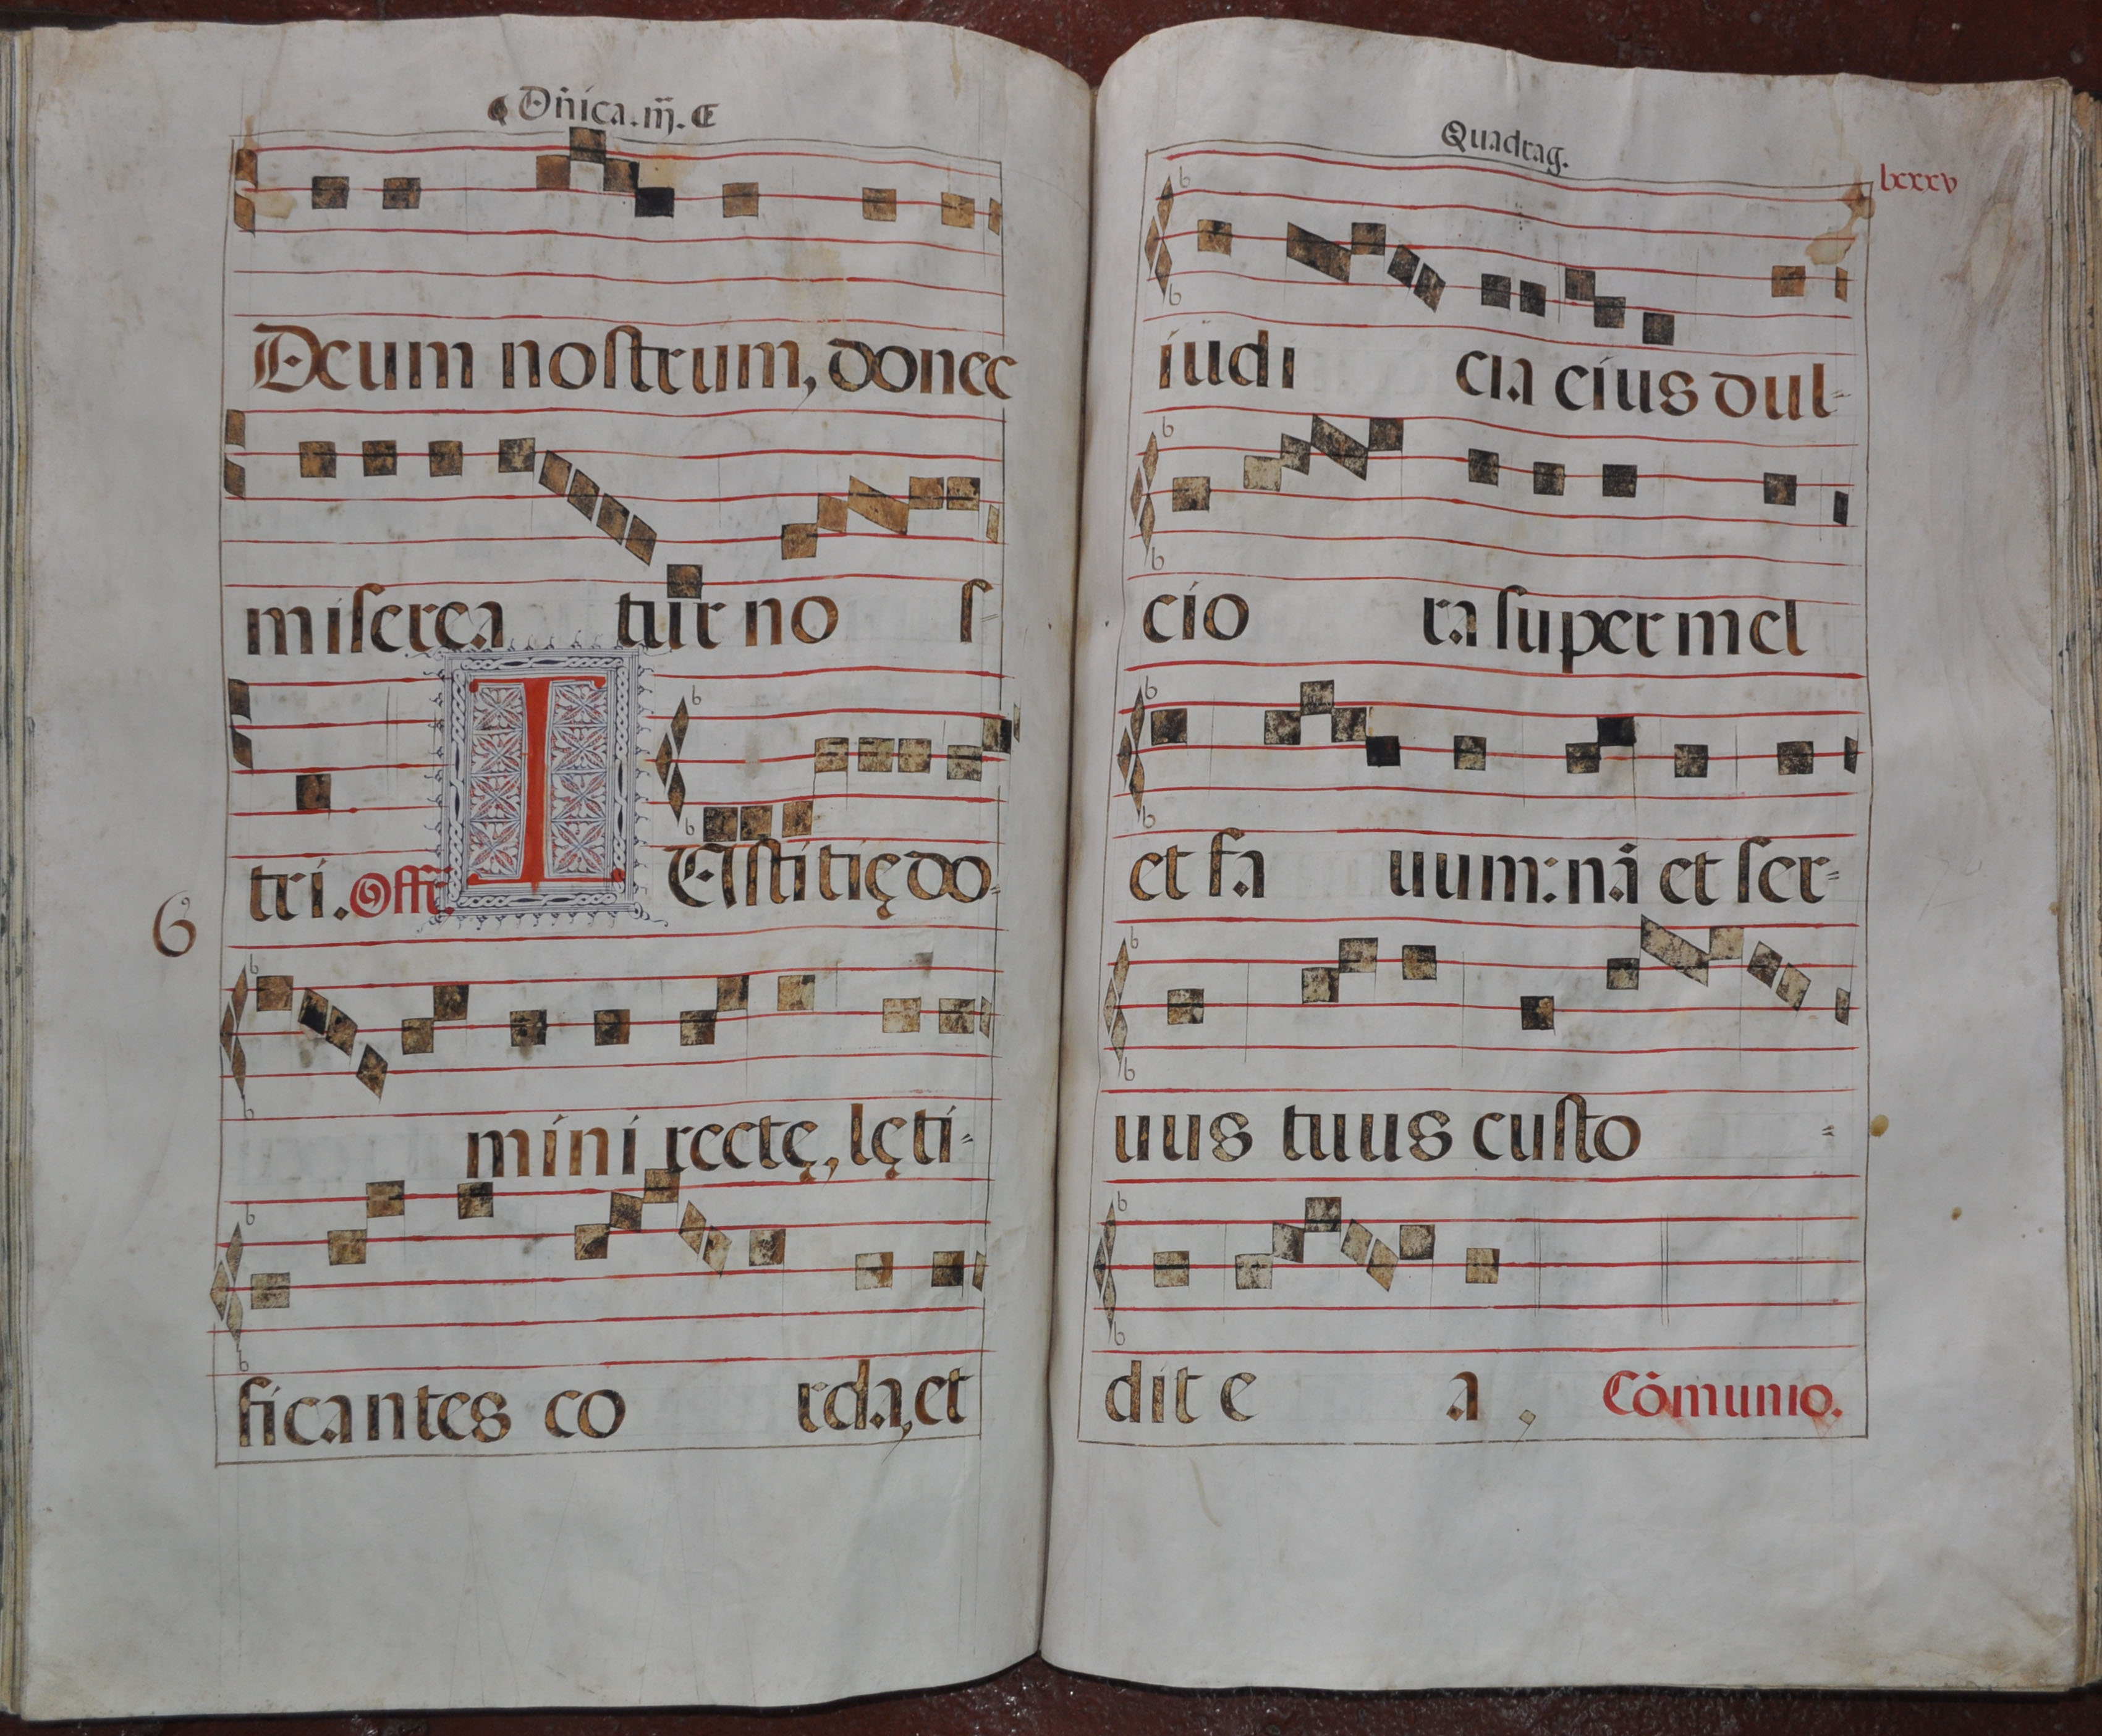 Dñica. iij.
Deum nostrum, donec
miserea tur no s
tri. Offr. I Ustitię do-
6
mini rectę, lęti-
ficantes co rda, et
Quadrag.
lxxxv
iudi cia eius dul-
cio ra super mel
et fa uum: nā et ser-
uus tuus custo =
dit e a, Cōmunio.